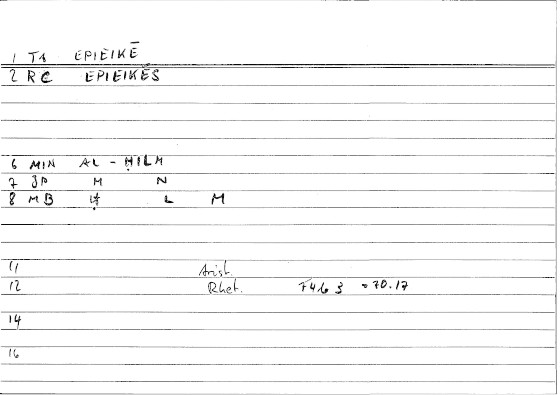 1 TA EPIEIKĒ
2 RC EPIEIKĒS
6 MIN AL-ḤILM
7 JP M N
8 MB Ḥ L M
11 Arist.
12 Rhet. = 70.17
14
16